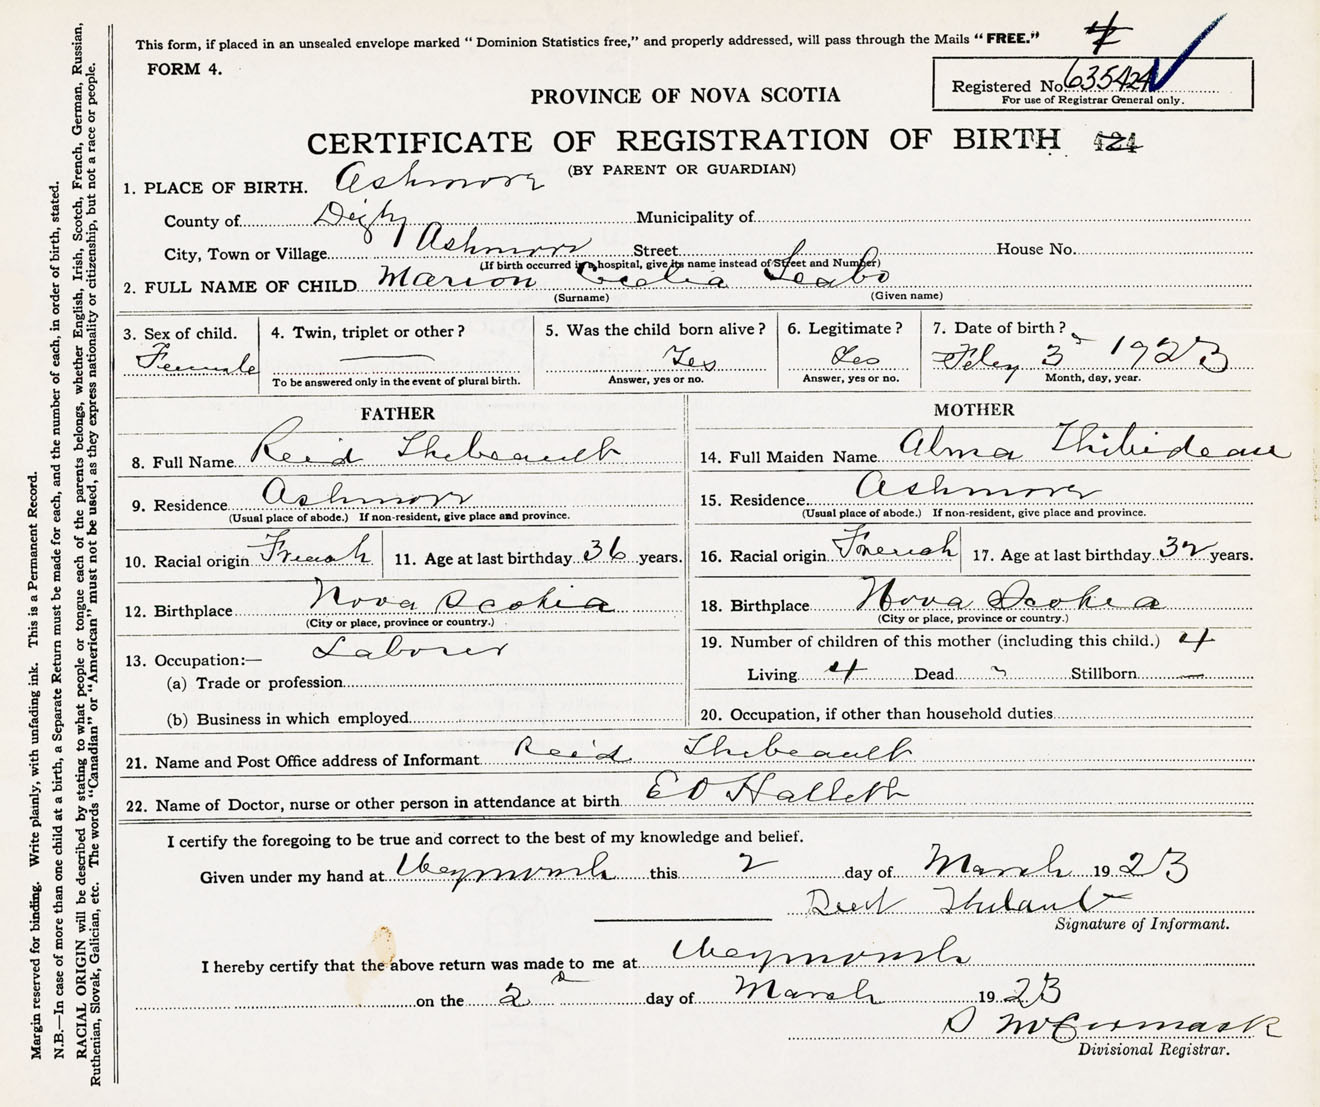 This form, if placed in an unsealed envelope marked " Dominion Statistics free," and properly addressed, will pass through the Mails " FREE."
FORM 4.
Registered No. 635424
For use of Registrar General only.
PROVINCE OF NOVA SCOTIA
CERTIFICATE OF REGISTRATION OF BIRTH 424
(BY PARENT OR GUARDIAN)
1. PLACE OF BIRTH. Ashmore
County of Digby Municipality of
City, Town or Village Ashmore Street House No.
(If birth occurred in a hospital, give its name instead of Street and Number)
2. FULL NAME OF CHILD Marion Cecelia
(Surname) (Given name)
3. Sex of child. 4. Twin, triplet or other? 5. Was the child born alive? 6. Legitimate? 7. Date of birth?
Female Yes Yes Feby 3 1923
To be answered only in the event of plural birth. Answer, yes or no. Answer, yes or no. Month, day, year.
FATHER
8. Full Name Reid Thibeault
9. Residence Ashmore
(Usual place of abode.) If non-resident, give place and province.
10. Racial origin French 11. Age at last birthday 36 years.
12. Birthplace Nova Scotia
(City or place, province or country.)
13. Occupation:— Laborer
(a) Trade or profession
(b) Business in which employed
MOTHER
14. Full Maiden Name Alma Thibideau
15. Residence Ashmore
(Usual place of abode.) If non-resident, give place and province.
16. Racial origin French 17. Age at last birthday 32 years.
18. Birthplace Nova Scotia
(City or place, province or country.)
19. Number of children of this mother (including this child.) 4
Living 4 Dead Stillborn —
20. Occupation, if other than household duties
21. Name and Post Office address of Informant Reid Thibeault
22. Name of Doctor, nurse or other person in attendance at birth E D Hallett
I certify the foregoing to be true and correct to the best of my knowledge and belief.
Given under my hand at Weymouth this 2 day of March 1923
Signature of Informant.
I hereby certify that the above return was made to me at Weymouth
on the 2 day of March 1923
D McCormack
Divisional Registrar.
Margin reserved for binding. Write plainly, with unfading ink. This is a Permanent Record.
N.B.—In case of more than one child at a birth, a Separate Return must be made for each, and the number of each, in order of birth, stated.
RACIAL ORIGIN will be described by stating to what people or tongue each of the parents belongs, whether English, Irish, Scotch, French, German, Russian,
Ruthenian, Slovak, Galician, etc. The words "Canadian" or "American" must not be used, as they express nationality or citizenship, but not a race or people.